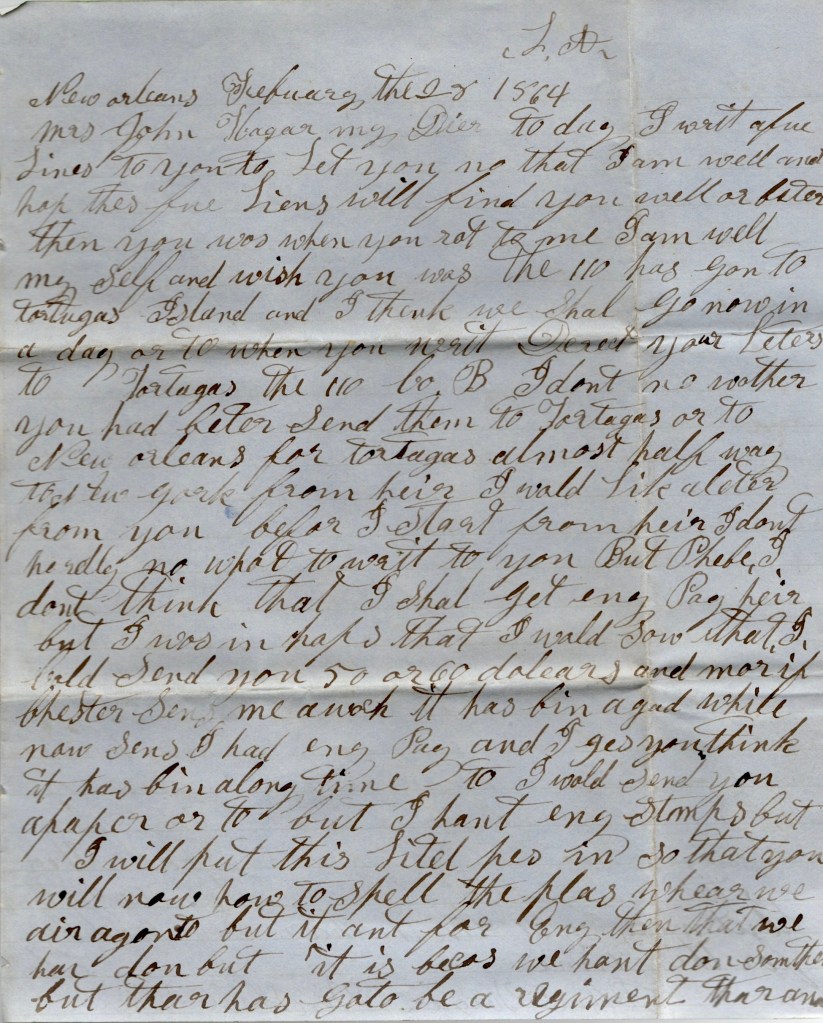 L. A.
New orleans Febuary the 28 1864
mrs John Hagar my Dier to day I writ a fue
Lines to you to Let you no that I am well and
hop thes fue Liens will find you well or beter
then you was when you rot to me I am well
my self and wish you was the 110 has gon to
tortugas Island and I think we Shal go now in
a day or to when you writ Derect your Leters
to Tortugas the 110 Co. B I dont no wother
you had beter send them to Tortugas or to
New orleans for tortugas almost half way
to New york from heir I wold Lik a leter
from you befor I Start from heir I dont
hardly no what to writ to you But Phebe, I
dont think that I shal get eny Pay heir
but I was in hops that I wald sow that, I,
cold send you 50 or 60 dolears and mor if
Chester Sens me it has bin a gud while
now sens I had eny Pay and I ges you think
it has bin along time to I wold send you
apaper or to but I hant eny stomps but
I will put this Litel pes in so that you
will now how to spell the plas whear we
air agonto but it ant for Eny then that we
hav don but it is becos we hant don Somthen
but thar has goto be a regiment thar an